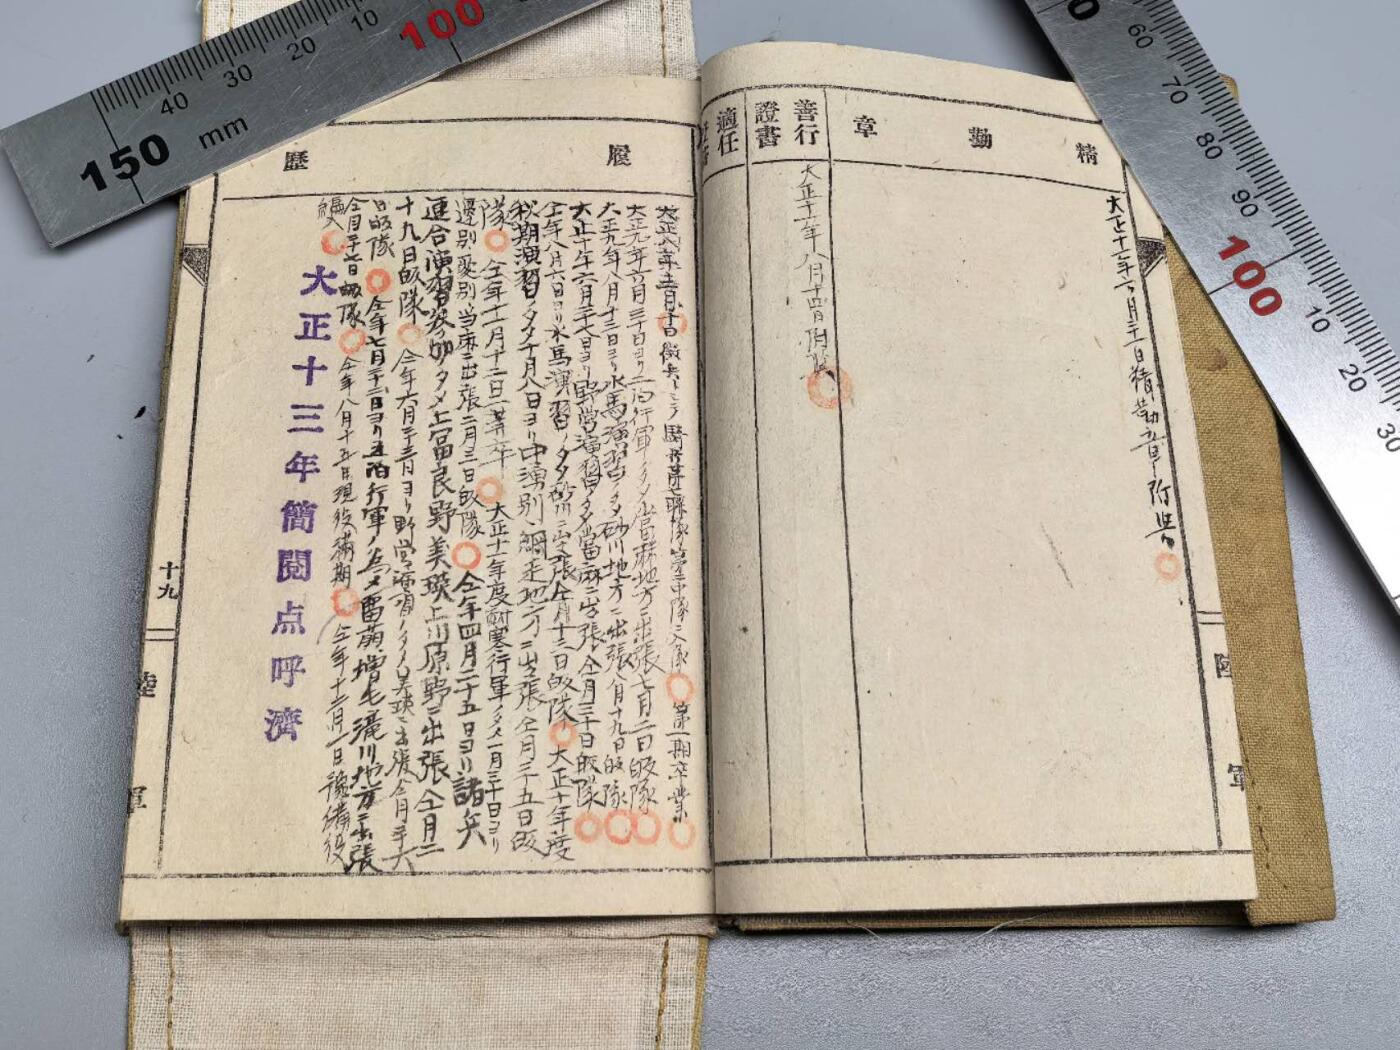 精勤章
大正十一年六月三十日精勤章附与
善行
證書
大正十一年八月十四日附与
適任
陸軍
履歴
大正八年十二月一日徴兵トシテ騎兵第七聯隊第二中隊ニ入隊 第一期卒業
大正九年六月三十日ヨリ二泊行軍ノタメ当麻地方ニ出張七月二日皈隊
大正九年八月十三日ヨリ水馬演習ノタメ砂川地方ニ出張八月十九日皈隊
大正十年六月二十七日ヨリ野営演習ノタメ当麻ニ出張仝月三十日皈隊
仝年八月六日ヨリ水馬演習ノタメ砂川ニ出張仝月十二日皈隊 大正十年度
秋期演習ノタメ十月八日ヨリ中湧別、網走地方ニ出張仝月二十五日皈
隊 仝年十一月十二日一等卒 大正十一年度耐寒行軍ノタメ一月三十日ヨリ
邊別愛別当麻ニ出張二月三日皈隊 仝年四月二十五日ヨリ諸兵
連合演習参加ノタメ上富良野美瑛上川原野ニ出張仝月二
十九日皈隊 仝年六月二十三日ヨリ野営演習ノタメ美瑛ニ出張仝月二十六
日皈隊 仝年七月二十二日ヨリ五泊行軍ノ為メ留萠増毛滝川地方ニ出張
仝月二十七日皈隊 仝年八月十五日現役満期 仝年十二月一日豫備役
編入
大正十三年簡閲点呼濟
十九
陸軍